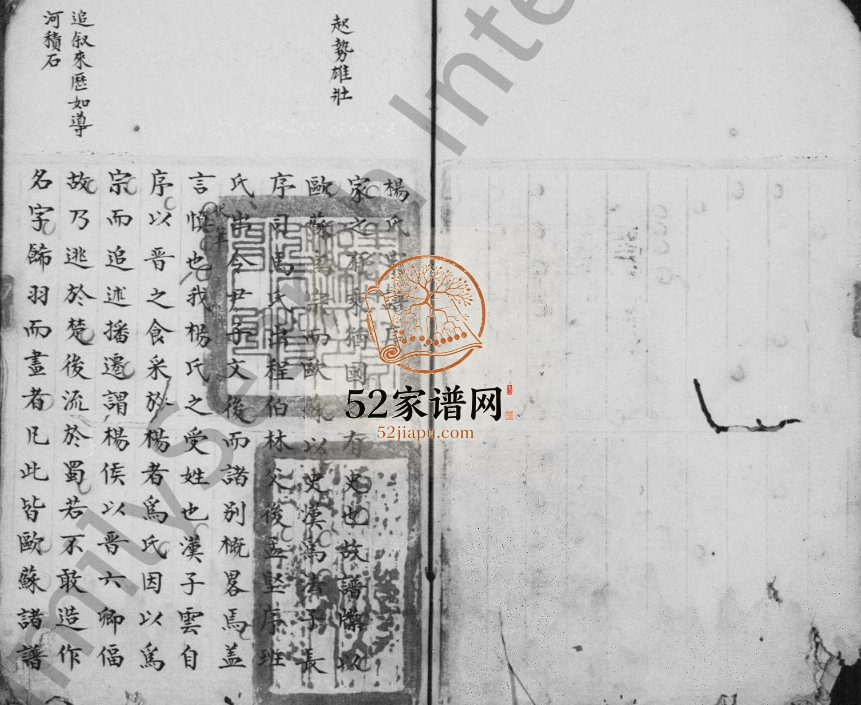 起勢雄壯
追叙來歷如導
河積石
楊氏宗譜序
家之有乘猶國有史也故譜牒以
歐蘇為宗而歐蘇以史漢為法子長
序司馬氏出程伯林父後孟堅序班
氏出令尹子文後而諸別概畧焉盖
言慎也我楊氏之受姓也漢子雲自
序以晋之食采於楊者爲氏因以爲
宗而追述播遷謂楊侯以晋六卿偪
故乃逃於楚後流於蜀若不敢造作
名字飾羽而畫者凡此皆歐蘇諸譜
52家谱网
52jiapu.com
milySe
Inte